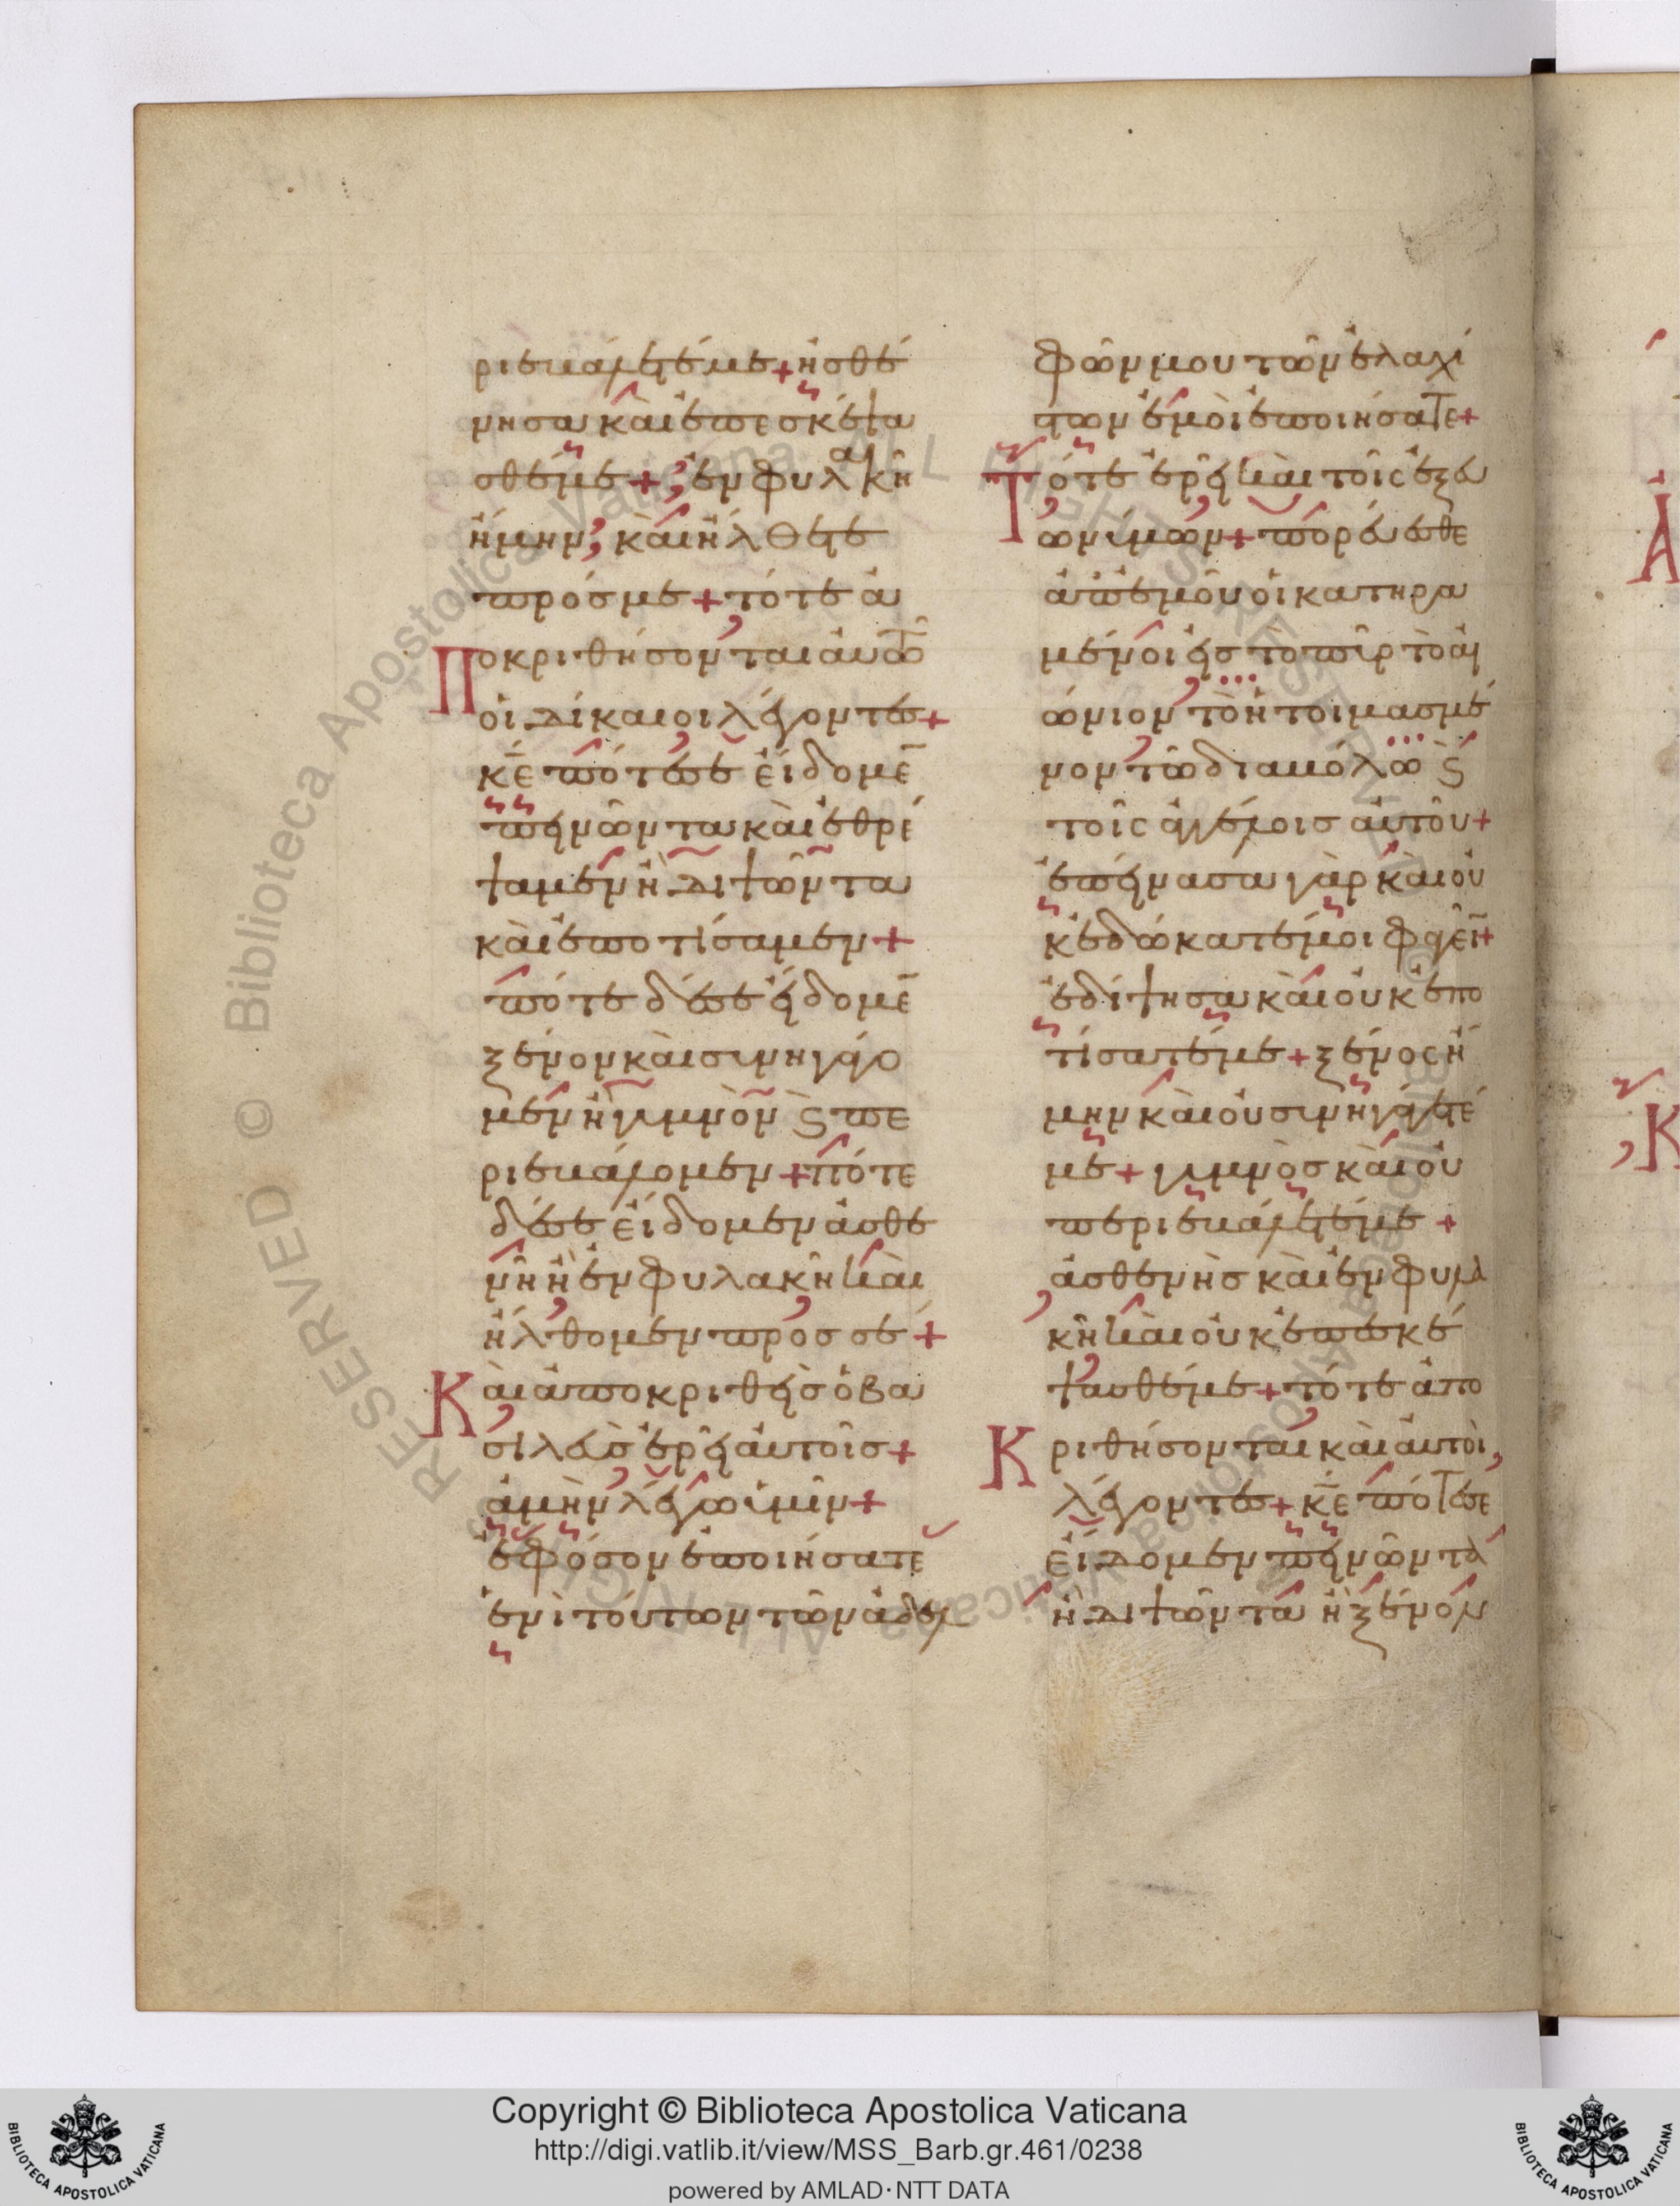 ριεβάλετέ με + ἠσθέ
νησα καὶ ἐπεσκέψα
σθέ με + ἐν φυλακῆ
ἤμην, καὶ ἤλθετε
πρός με + τότε ἀ
ποκριθήσονται αὐτῶ
οἱ δίκαιοι λέγοντες +
κ̅ε̅ πότέ σε εἴδομε̅
πεινῶντα καὶ ἐθρέ
ψαμεν ἢ διψῶντα
καὶ ἐποτίσαμεν +
πότε δέ σε εἴδομε̅
ξένον καὶ συνηγάγο
μεν ἢ γυμνὸν ϛ πε
ριεβάλομεν + πότε
δέ σε εἴδομεν ἀσθε
νῆ ἢ ἐν φυλακῆ καὶ
ἤλθομεν πρός σέ +
Καὶ ἀποκριθεὶς ὁ βα
σιλεὺς ἐρεῖ αὐτοῖς +
ἀμὴν λέγω ὑμῖν +
ἐφόσον ἐποιήσατε
ἑνὶ τούτων τῶν ἀδελ
φῶν μου τῶν ἐλαχί
στων ἐμοὶ ἐποιήσατε +
Τότε ἐρεῖ καὶ τοῖς ἐξ εὐ
ωνύμων + πορεύεσθε
ἀπ' ἐμοῦ οἱ κατηρα
μένοι εἰς τὸ πῦρ τὸ αἰ
ώνιον τὸ ἡτοιμασμέ
νον τῶ διαβόλω ϛ
τοῖς ἀγγέλοις αὐτοῦ +
ἐπείνασα γὰρ καὶ οὐ
κ ἐδώκατέ μοι φαγεῖ̅ +
ἐδίψησα καὶ οὐκ ἐπο
τίσατέ με + ξένος ἤ
μην καὶ οὐ συνηγάγετέ
με + γυμνὸς καὶ οὐ
περιεβάλετέ με +
ἀσθενὴς καὶ ἐν φυλα
κῆ καὶ οὐκ ἐπεσκέ
ψασθέ με + τότε ἀπο
Κριθήσονται καὶ αὐτοὶ,
λέγοντες + κ̅ε̅ πότέ σε
εἴδομεν πεινῶντα
ἢ διψῶντα ἢ ξένον
Τ
Α
Κ
© Biblioteca Apostolica Vaticana ALL RIGHTS RESERVED
Copyright © Biblioteca Apostolica Vaticana
http://digi.vatlib.it/view/MSS_Barb.gr.461/0238
powered by AMLAD·NTT DATA
BIBLIOTECA APOSTOLICA VATICANA
BIBLIOTECA APOSTOLICA VATICANA